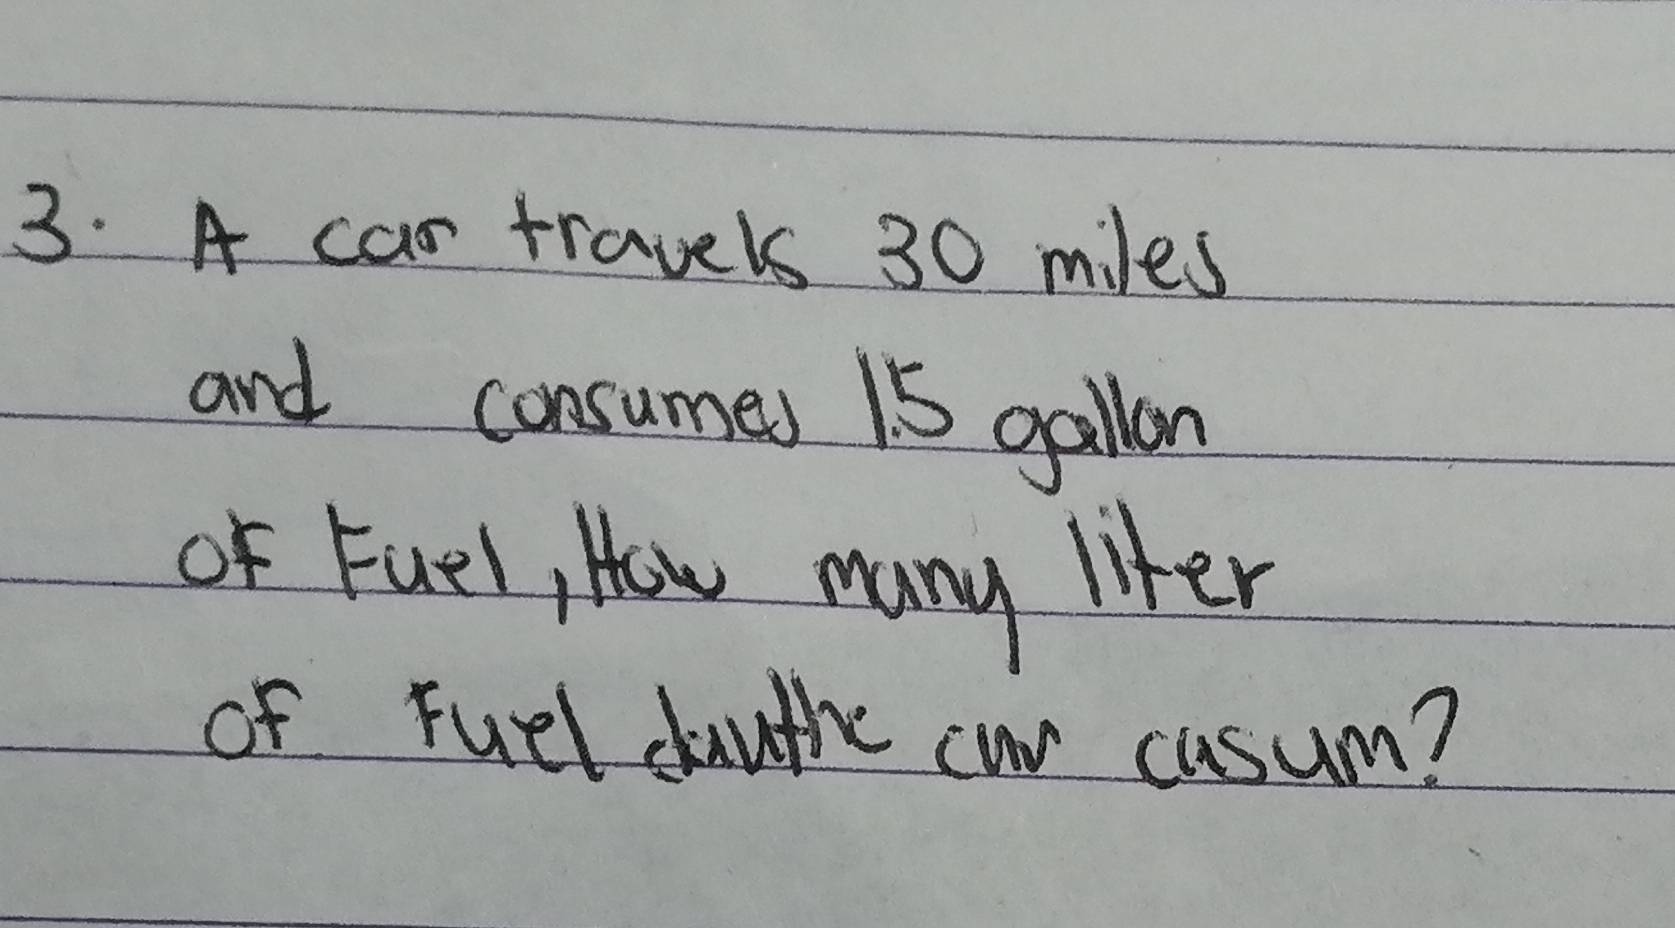 3. A car travels 30 miles
and consumes 1.5 gallon
of Fuel, How many liter
of Fuel the car casum?